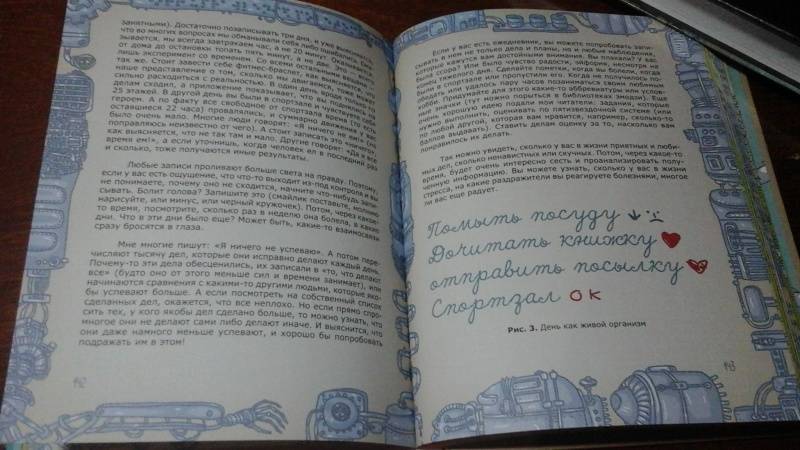 занятными). Достаточно позаписывать три дня, и уже выясняется,
что во многих вопросах мы обманывали себя либо ошибались. Ока-
зывается, мы всегда завтракаем час, а не 20 минут. Оказывается,
от дома до остановки топать пять минут, а не две. Проведите
лишь эксперимент со временем. Со всем остальным —
так же. Стоит завести себе фитнес-браслет, как выясняется, что
наше представление о том, сколько мы двигаемся, тоже может
сильно расходиться с реальностью. В один день вы полдня по
делам сходил, а приложение показывает, что вы поднялись на
25 этажей. В другой день вы были в спортзале и чувствуете себя
героем. А по факту все свободное от спортзала время (то есть
оставшиеся 22 часа) провалялись, и суммарно движения у вас
было очень мало. Многие люди говорят: «Я ничего не ем! (но
поправляюсь неизвестно от чего). А стоит записать это «ничего»,
как выясняется, что не так там и мало. Другие говорят: «Да я все
время ем!», а если уточнишь, когда человек ел в последний раз
и сколько, тоже получаются иные результаты.
Любые записи проливают больше света на правду. Поэтому,
если у вас есть ощущение, что что-то выходит из-под контроля и вы
не понимаете, почему оно не сходится, начните что-нибудь запи-
сывать. Болит голова? Запишите это (смайлик поставьте, молнию
нарисуйте, или минус, или черный кружочек). Потом, через какое-
то время, посмотрите, сколько раз в неделю она болела, в какие
дни. Что в эти дни было еще? Может быть, какие-то взаимосвязи
сразу бросятся в глаза.
Мне многие пишут: «Я ничего не успеваю». А потом пере-
числяют тысячу дел, которые они исправно делают каждый день.
Почему-то эти дела обесценились, их записали в «то, что делают
все» (будто оно от этого меньше сил и времени занимает), или
начинаются сравнения с какими-то другими людьми, которые яко-
бы успевают больше. А если посмотреть на собственный список
сделанных дел, окажется, что все неплохо. Но если прямо спро-
сить тех, у кого якобы дел сделано больше, то можно узнать, что
многое они не делают сами либо делают иначе. И выяснится, что
они даже намного меньше успевают, и хорошо бы попробовать
подражать им в этом!
142
Если у вас есть ежедневник, вы можете попробовать запи-
сывать в нем не только дела и планы, но и любые наблюдения,
которые кажутся вам достойными внимания. Вы плакали? У вас
была ссора? Или было чувство радости, эйфории, несмотря на
конец тяжелого дня. Сделайте пометки, когда вы болели, когда
были в спортзале или пропустили его. Когда не получилось по-
обедать или удалось пару часов позаниматься своим любимым
хобби. Придумайте для этого какие-то аббревиатуры или услов-
ные значки (тут можно порыться в библиотеках эмодзи). Еще
очень хорошую идею подали мои читатели: задания, которые
нужно выполнить, оценивать по пятизвездочной системе (или
по любой другой, которая вам нравится, например, сколько-то
баллов выдавать). Ставить делам оценку за то, насколько вам
понравилось их делать.
Так можно увидеть, сколько у вас в жизни приятных и люби-
мых дел, сколько ненавистных или скучных. Потом, через какое-то
время, будет очень интересно сесть и проанализировать полу-
ченную информацию. Вы можете узнать, сколько у вас в жизни
стресса, на какие раздражители вы реагируете болезнями, многое
ли вас еще радует.
Помыть посуду
Дочитать книжку
отправить посылку
Спортзал ОК
Рис. 3. День как живой организм
143